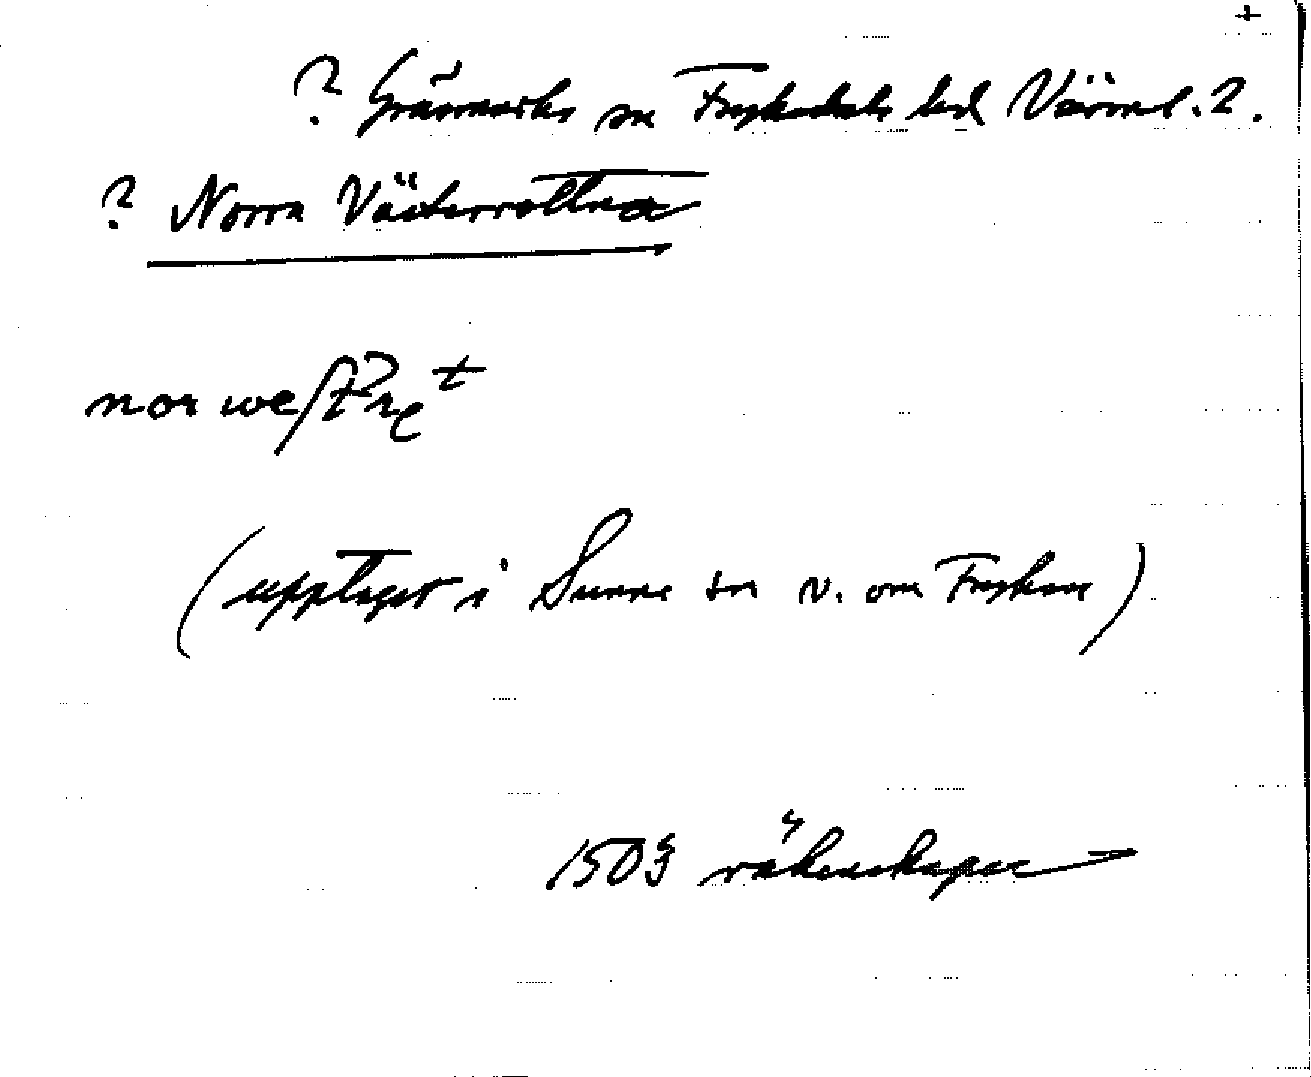 +
? Gräsmarks sn Fryksdals hd Värml. ?.
? Norra Västerrottna
nor weſt
(upptaget i Sunne sn v. om Fryken)
1503 räkenskaper